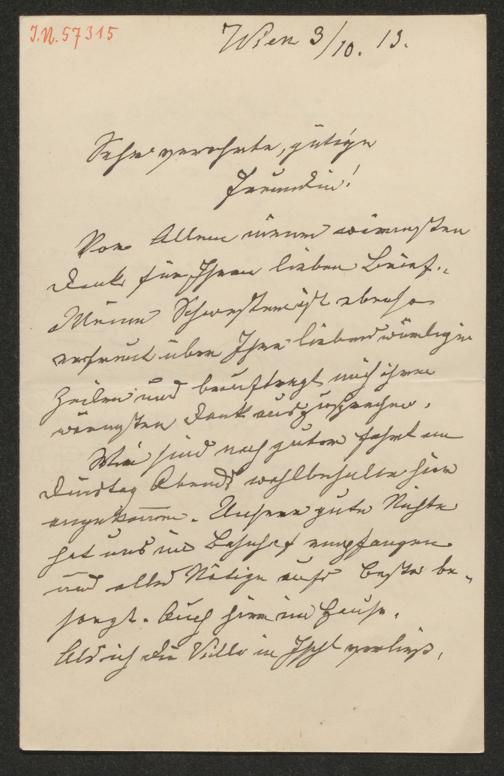 I.N. 57315
Wien 3/10. 13.
Sehr verehrte, gütige
Freundin!
Vor Allem meinen wärmsten
Dank für Ihren lieben Brief.
Meine Schwester ist ebenso
erfreut über Ihre liebenswürdigen
Zeilen und beauftragt mich ihren
wärmsten Dank auszusprechen.
Wir sind nach guter Fahrt am
Dinstag Abends wohlbehalten hier
angekommen. Unsere gute Nichte
hat uns im Bahnhof empfangen
und alles Nötige aufs beste be-
sorgt. Auch hier im Hause.
Als ich die Villa in Ischl verließ,